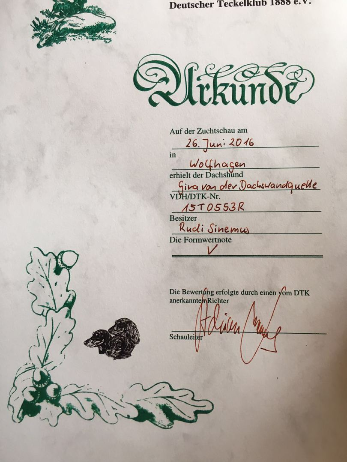 Deutscher Teckelklub 1888 e.V.
Urkunde
Auf der Zuchtschau am
26. Juni 2016
in
Wolfhagen
erhielt der Dachshund
Gina von der Dachswandquelle
VDH/DTK-Nr.
15T0553R
Besitzer
Rudi Sinemus
Die Formwertnote
V
Die Bewertung erfolgte durch einen vom DTK
anerkannten Richter
Schauleiter